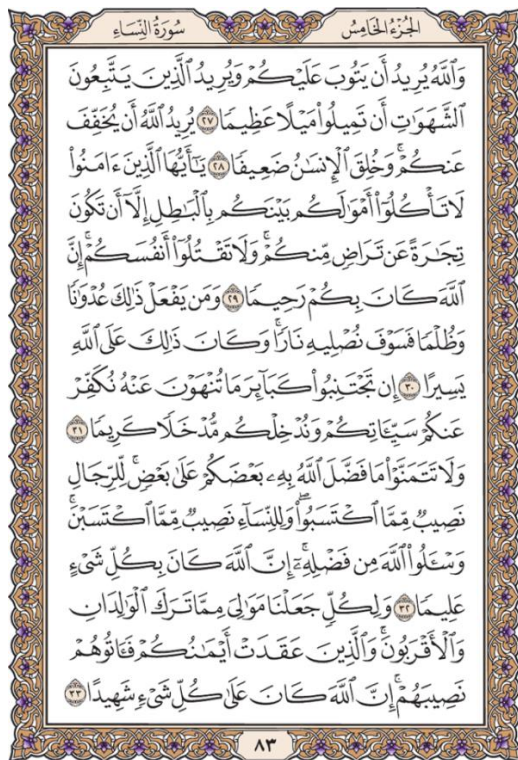 الجُزْءُ الخَامِسُ
سُورَةُ النِّسَاءِ
وَٱللَّهُ يُرِيدُ أَن يَتُوبَ عَلَيْكُمْ وَيُرِيدُ ٱلَّذِينَ يَتَّبِعُونَ
ٱلشَّهَوَٰتِ أَن تَمِيلُوا۟ مَيْلًا عَظِيمًا ٢٧ يُرِيدُ ٱللَّهُ أَن يُخَفِّفَ
عَنكُمْۚ وَخُلِقَ ٱلْإِنسَٰنُ ضَعِيفًا ٢٨ يَٰٓأَيُّهَا ٱلَّذِينَ ءَامَنُوا۟
لَا تَأْكُلُوٓا۟ أَمْوَٰلَكُم بَيْنَكُم بِٱلْبَٰطِلِ إِلَّآ أَن تَكُونَ
تِجَٰرَةً عَن تَرَاضٍ مِّنكُمْۚ وَلَا تَقْتُلُوٓا۟ أَنفُسَكُمْۚ إِنَّ
ٱللَّهَ كَانَ بِكُمْ رَحِيمًا ٢٩ وَمَن يَفْعَلْ ذَٰلِكَ عُدْوَٰنًا
وَظُلْمًا فَسَوْفَ نُصْلِيهِ نَارًاۚ وَكَانَ ذَٰلِكَ عَلَى ٱللَّهِ
يَسِيرًا ٣٠ إِن تَجْتَنِبُوا۟ كَبَآئِرَ مَا تُنْهَوْنَ عَنْهُ نُكَفِّرْ
عَنكُمْ سَيِّـَٔاتِكُمْ وَنُدْخِلْكُم مُّدْخَلًا كَرِيمًا ٣١
وَلَا تَتَمَنَّوْا۟ مَا فَضَّلَ ٱللَّهُ بِهِۦ بَعْضَكُمْ عَلَىٰ بَعْضٍۚ لِّلرِّجَالِ
نَصِيبٌ مِّمَّا ٱكْتَسَبُوا۟ۖ وَلِلنِّسَآءِ نَصِيبٌ مِّمَّا ٱكْتَسَبْنَۚ
وَسْـَٔلُوا۟ ٱللَّهَ مِن فَضْلِهِۦٓۚ إِنَّ ٱللَّهَ كَانَ بِكُلِّ شَىْءٍ
عَلِيمًا ٣٢ وَلِكُلٍّ جَعَلْنَا مَوَٰلِىَ مِمَّا تَرَكَ ٱلْوَٰلِدَانِ
وَٱلْأَقْرَبُونَۚ وَٱلَّذِينَ عَقَدَتْ أَيْمَٰنُكُمْ فَـَٔاتُوهُمْ
نَصِيبَهُمْۚ إِنَّ ٱللَّهَ كَانَ عَلَىٰ كُلِّ شَىْءٍ شَهِيدًا ٣٣
٨٣